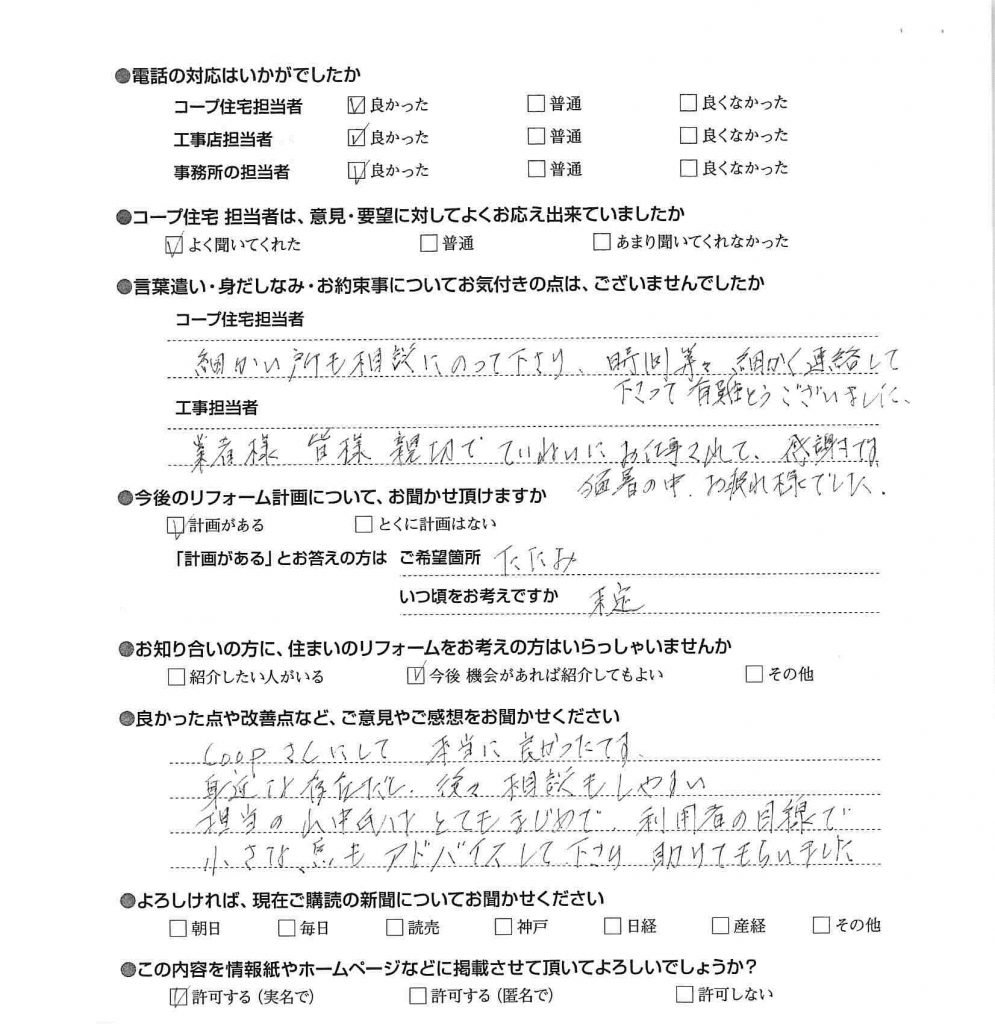 ●電話の対応はいかがでしたか
コープ住宅担当者 ☑良かった □普通 □良くなかった
工事店担当者 ☑良かった □普通 □良くなかった
事務所の担当者 ☑良かった □普通 □良くなかった
●コープ住宅 担当者は、意見・要望に対してよくお応え出来ていましたか
☑よく聞いてくれた □普通 □あまり聞いてくれなかった
●言葉遣い・身だしなみ・お約束事についてお気付きの点は、ございませんでしたか
コープ住宅担当者
細かい所も相談にのって下さり、時間等々細かく連絡して
下さって有難とうございました、
工事担当者
業者様 皆様 親切で ていねいにお仕事されて、感謝です
猛暑の中、お疲れ様でした。
●今後のリフォーム計画について、お聞かせ頂けますか
☑計画がある □とくに計画はない
「計画がある」とお答えの方は ご希望箇所 たたみ
いつ頃をお考えですか 未定
●お知り合いの方に、住まいのリフォームをお考えの方はいらっしゃいませんか
□紹介したい人がいる ☑今後 機会があれば紹介してもよい □その他
●良かった点や改善点など、ご意見やご感想をお聞かせください
Coopさんにして 本当に良かったです、
身近な存在だし、後々相談もしやすい
担当の山中氏はとてもまじめで、利用者の目線で
小さな点もアドバイスして下さり 助けてもらいました
●よろしければ、現在ご購読の新聞についてお聞かせください
□朝日 □毎日 □読売 □神戸 □日経 □産経 □その他
●この内容を情報紙やホームページなどに掲載させて頂いてよろしいでしょうか?
☑許可する(実名で) □許可する(匿名で) □許可しない